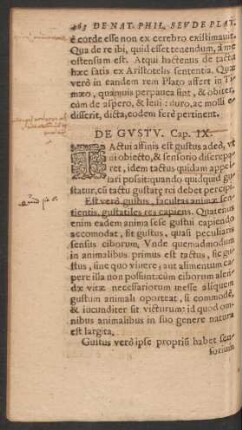 DE NAT. PHIL. SEV DE PLAT.
è corde esse non ex cerebro existimauit.
Qua de re ibi, quid esset tenendum, à me
ostensum est. Atqui hactenus de tactu
hæc satis ex Aristotelis sententia. Quæ
verò in eandem rem Plato asserit in Ti-
mæo, quamuis perpauca sint, & obiter,
cùm de aspero, & leui: duro, ac molli è
disserit, dicta, eodem ferè pertinent.
DE GVSTV. Cap. IX.
Tactui affinis est gustus adeò, vt
ni obiecto, & sensorio discrepa-
ret, idem tactus quidam appel-
lari possit: quando quidquid gu-
statur, cū tactu gustarę rei debet percipi.
Est verò gustus, facultas animæ sen-
tientis, gustatiles res capiens. Quæ
eadem anima sese gustui capiendo
accomodat, sit gustus, quasi peculiaris
sensus ciborum, Vnde quemadmodum
in animalibus primus est tactus, sic gu-
stus, siue quo viuere; aut alimentum ca-
pere illa non possint: cùm ciborum alen-
dæ vitæ necessariorum inesse aliquem
gustum animali oporteat, si commodè,
& iucunditer sit victurum: id quod om-
nibus animalibus in suo genere natura
est largita.
Gustus verò ipse propriū habet sen-
sorium